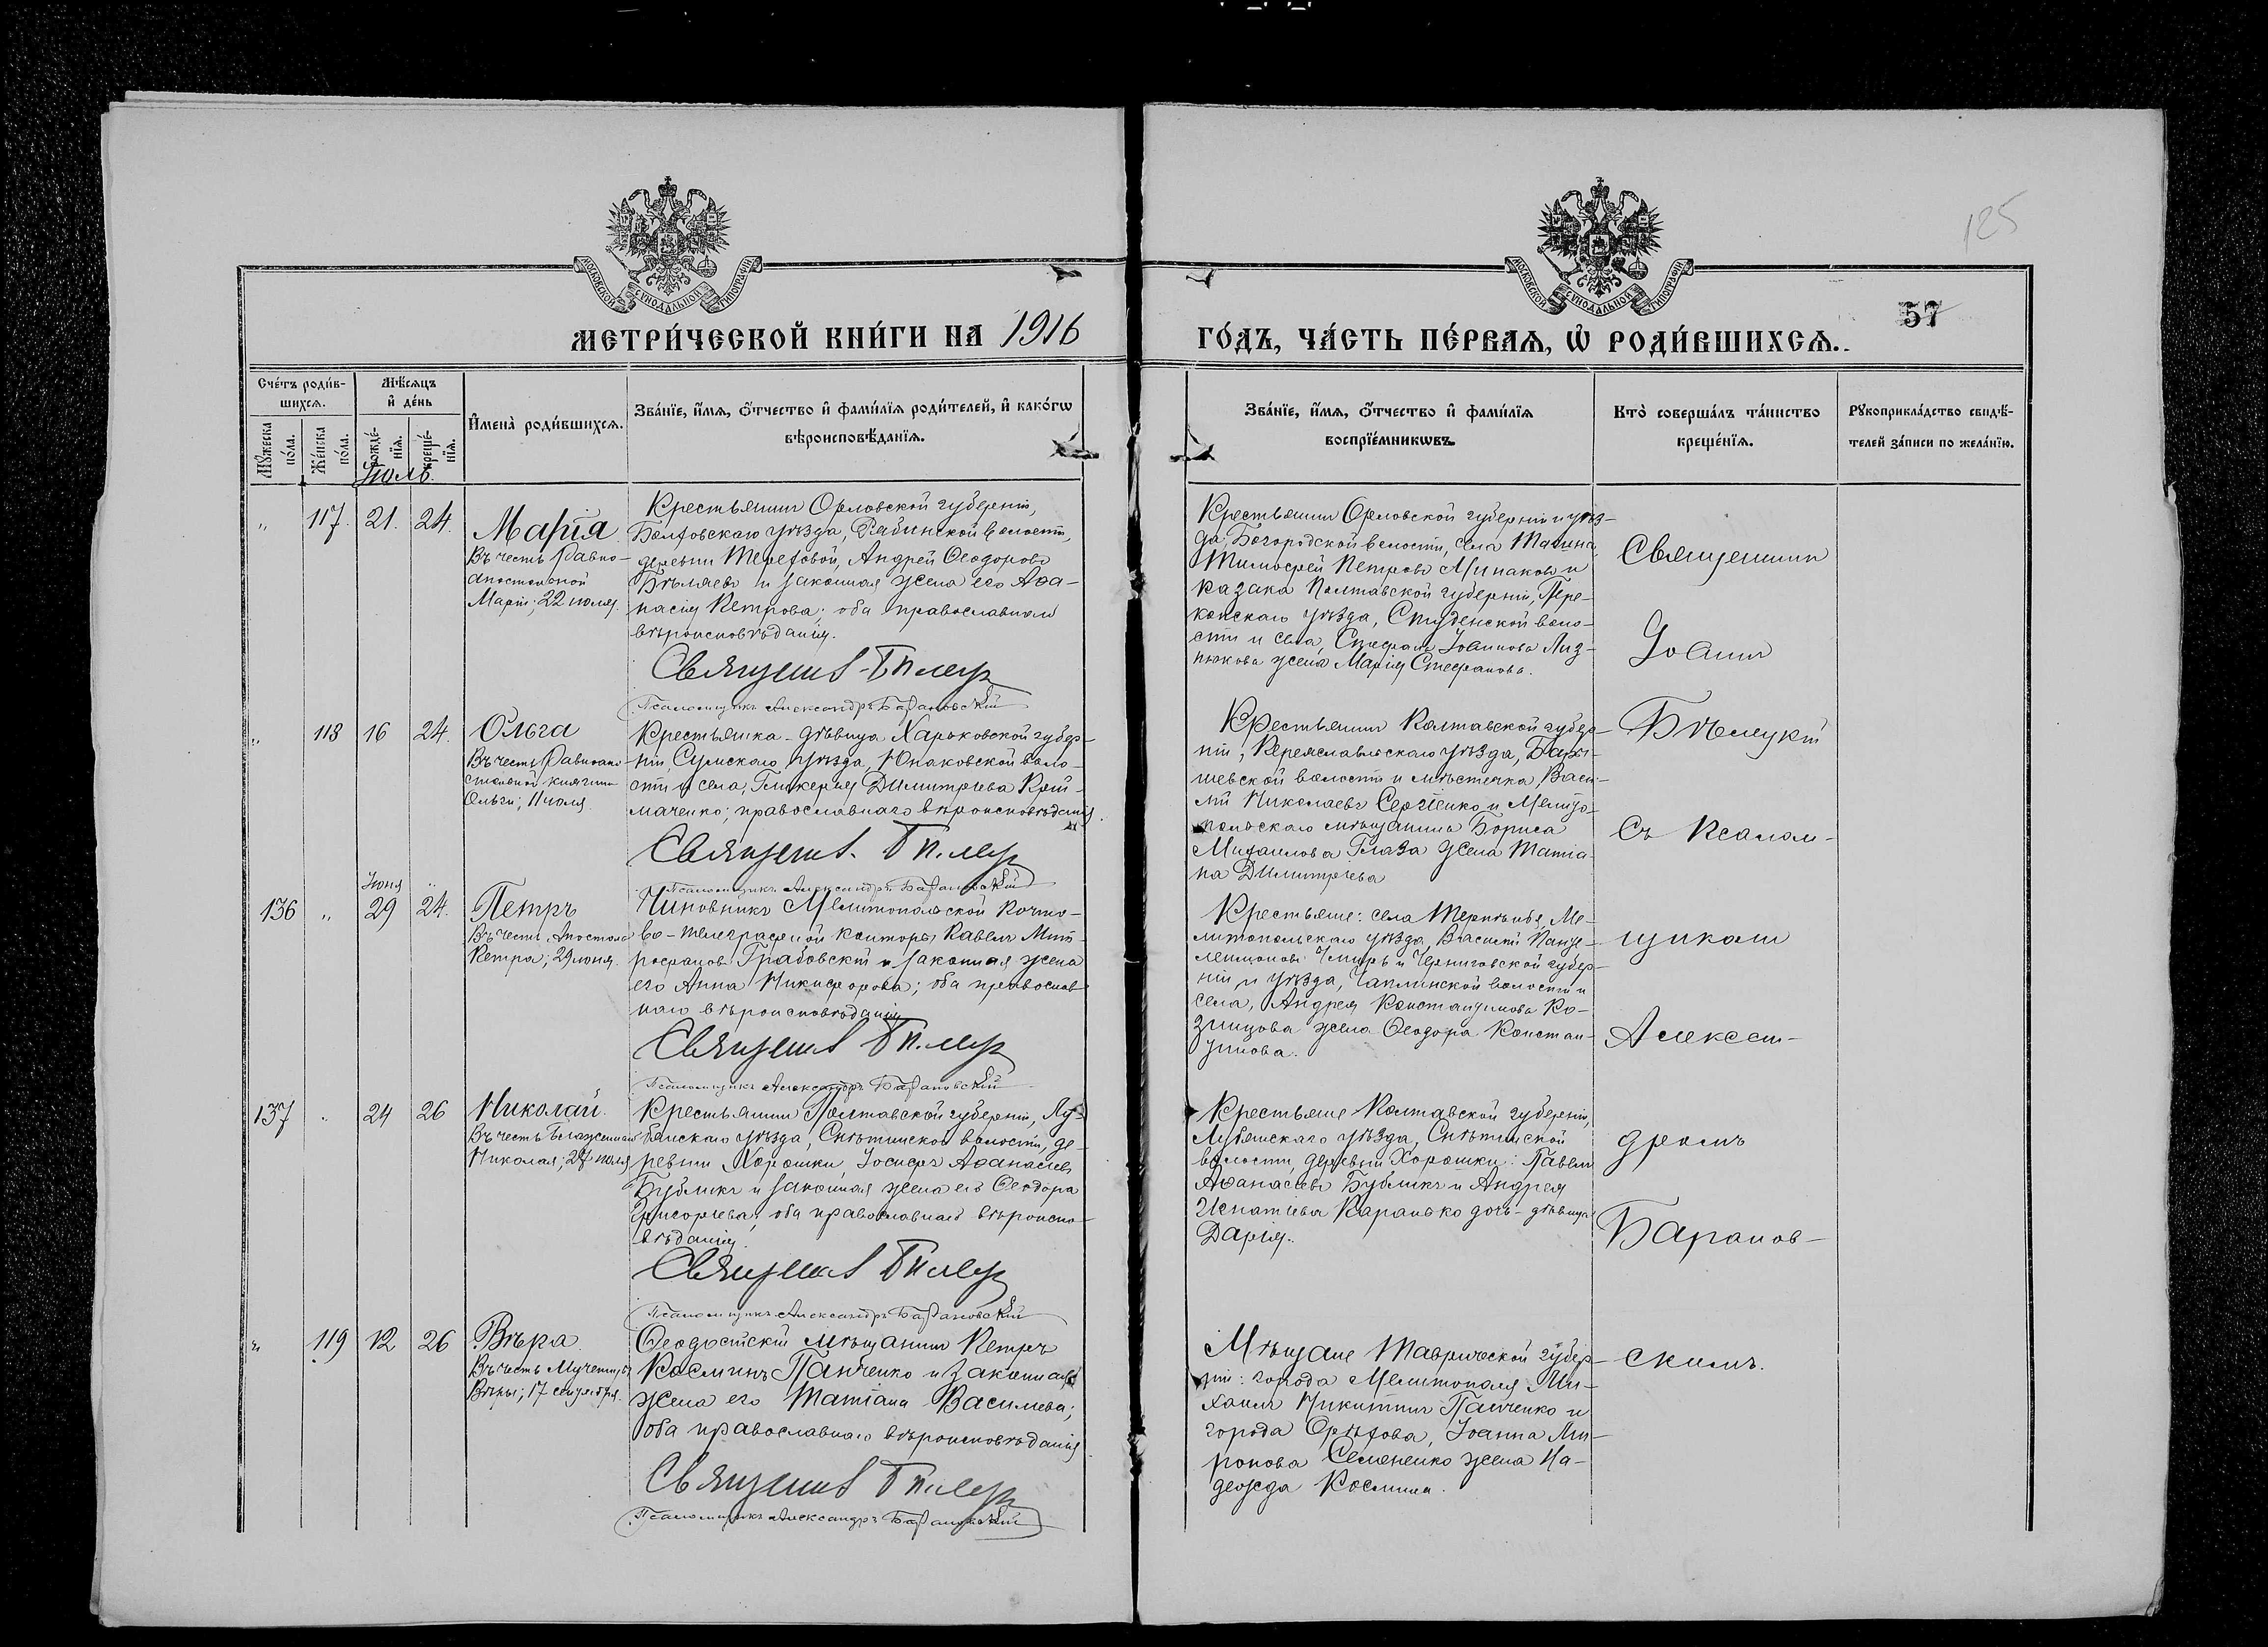 125
МОСКОВСКОЙ СѴНОДАЛЬНОЙ ТИПОГРАФІИ
МОСКОВСКОЙ СѴНОДАЛЬНОЙ ТИПОГРАФІИ
57
МЕТРИ́ЧЕСКОЙ КНИ́ГИ НА 1916
ГО́ДЪ, ЧА́СТЬ ПЕ́РВАѦ, Ѡ҆ РОДИ́ВШИХСѦ.
Сче́тъ роди́в-
шихсѧ.
Мѣ́сѧцъ
и҆ де́нь
Мꙋ́жеска
по́ла.
Же́нска
по́ла.
рожде́-
нїѧ.
креще́-
нїѧ.
И҆мена̀ роди́вшихсѧ.
Зва́нїе, и҆́мѧ, ѻ҆́тчество и҆ фами́лїѧ роди́телей, и҆ како́гѡ
вѣроисповѣ́данїѧ.
Зва́нїе, и҆́мѧ, ѻ҆́тчество и҆ фами́лїѧ
воспрїе́мникѡвъ.
Кто̀ соверша́лъ та́инство
креще́нїѧ.
Рꙋкоприкла́дство свидѣ́-
телей за́писи по жела́нїю.
Июль.
„ 117. 21. 24.
Марія
Въ честь Равно-
апостольной
Маріи; 22 июля.
Крестьянинъ Орловской губерніи,
Болховскаго уѣзда, Рябинской волости,
деревни Тереховой, Андрей Ѳеодоровъ
Бѣляевъ и законная жена его Аѳа-
насія Петрова; оба православнаго
вѣроисповѣданія.
Священникъ
Псаломщикъ Александръ Барановскій
Крестьянинъ Орловской губерніи и уѣз-
да, Богородской волости, села
Тимоѳей Петровъ Минаковъ и
казака Полтавской губерніи,
уѣзда, воло-
сти и села, Стефана Іоаннова Лиз-
нюкова жена Марія Стефанова.
Священникъ
Іоаннъ
Бѣлецкій
„ 118 16 24.
Ольга
Въ честь Равноапо
стольной княгини
Ольги; 11 июля.
Крестьянка-дѣвица Харьковской губер-
ніи, Сумскаго уѣзда, Юнаковской воло-
сти и села, Гликерія Димитріева
маченко; православнаго вѣроисповѣданія.
Священникъ
Псаломщикъ Александръ Барановскій
Крестьянинъ Полтавской губер-
ніи, Переяславльскаго уѣзда, Бары-
шевской волости и мѣстечка, Васи-
лій Николаевъ Сергіенко и Мелито-
польскаго мѣщанина Бориса
Михаилова Глаза жена Татіа-
на Димитріева
Съ Псалом-
Июня
136 „ 29 24.
Петръ
Въ честь Апостола
Петра; 29 июня.
Чиновникъ Мелитопольской Почто-
во-телеграфной конторы Павелъ Мит-
рофановъ Грабовскій и законная жена
его Анна Никифорова; оба православ-
наго вѣроисповѣданія
Священникъ
Псаломщикъ Александръ Барановскій
Крестьяне: села Терпѣнія, Ме-
литопольскаго уѣзда, Василій Панте-
леимоновъ и Черниговской губер-
ніи и уѣзда, волости и
села, Андрея Константинова Ко-
зинцова жена Ѳеодора Констан-
тинова.
щикомъ
Алексан-
137 „ 24 26
Николай.
Въ честь Блаженнаго
Николая; 27 июля
Крестьянинъ Полтавской губерніи, Лу-
бенскаго уѣзда, Снѣтинской волости, де-
ревни Хорошки, Іосифъ Аѳанасіевъ
Бубликъ и законная жена его Ѳеодора
Григорьева; оба православнаго вѣроиспо-
вѣданія.
Священникъ
Псаломщикъ Александръ Барановскій
Крестьяне Полтавской губерніи,
Лубенскаго уѣзда, Снѣтинской
волости, деревни Хорошки: Павелъ
Аѳанасіевъ Бубликъ и Андрея
Игнатіева Каранько дочь-дѣвица
Дарія.
дромъ
Баранов-
„ 119 12 26
Вѣра.
Въ честь Мученицы
Вѣры; 17 сентября.
Ѳеодосійскій мѣщанинъ Петръ
Косминъ Панченко и законная
жена его Татіана Василиева;
оба православнаго вѣроисповѣданія
Священникъ
Псаломщикъ Александръ Барановскій
Мѣщане Таврической губер-
ніи: города Мелитополя Ми-
хаилъ Никитинъ Панченко и
города Орѣхова, Іоанна Ми-
ронова Семененко жена На-
дежда Космина.
скимъ.